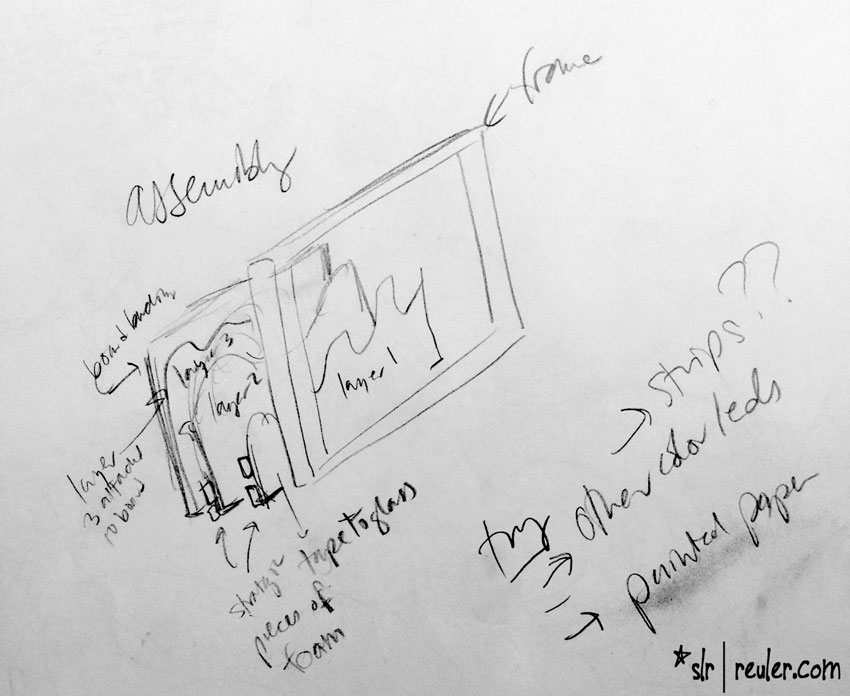 frame
assembly
board backing
layer 3
layer 2
layer 1
layer
3 attached
to board
tape to glass
strategic
pieces of
foam
try
→ strips??
→ other color leds
→ painted paper
*slr | reuler.com